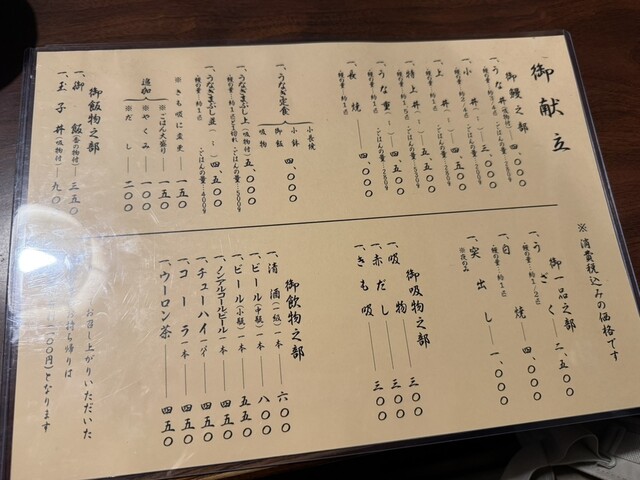 御献立
※消費税込みの価格です
御鰻之部
一、うな丼(吸物付)― 四、〇〇〇
一、小丼(〃)― 三、〇〇〇
一、上丼(〃)― 四、五〇〇
一、特上丼(〃)― 五、五〇〇
一、うな重(〃)― 四、五〇〇
一、長焼― 四、〇〇〇
一、うなぎ定食
小長焼
小鉢
御飯
吸物
四、〇〇〇
一、うなぎまぶし上(吸物付)― 五、〇〇〇
一、うなぎまぶし並(〃)― 四、五〇〇
※きも吸に変更― 一五〇
追加
※ごはん大盛り― 一五〇
※やくみ― 一〇〇
※だし― 二〇〇
御飯物之部
一、御飯(吸物付)― 三五〇
一、玉子丼(吸物付)― 九〇
御一品之部
一、うざく― 二、五〇〇
一、白焼― 四、〇〇〇
一、実出し― 一、〇〇〇
※夜のみ
御吸物之部
一、吸物― 三〇〇
一、赤だし― 三〇〇
一、きも吸― 三〇〇
御飲物之部
一、清酒(一級)一本― 六〇〇
一、ビール(中瓶)一本― 八〇〇
一、ビール(小瓶)一本― 五五〇
一、ノンアルコールビール一本― 四五〇
一、チューハイ一パイ― 四五〇
一、コーラ一本― 四五〇
一、ウーロン茶― 四五〇
お召し上がりいただいた
お持ち帰りは
〇〇円)となります